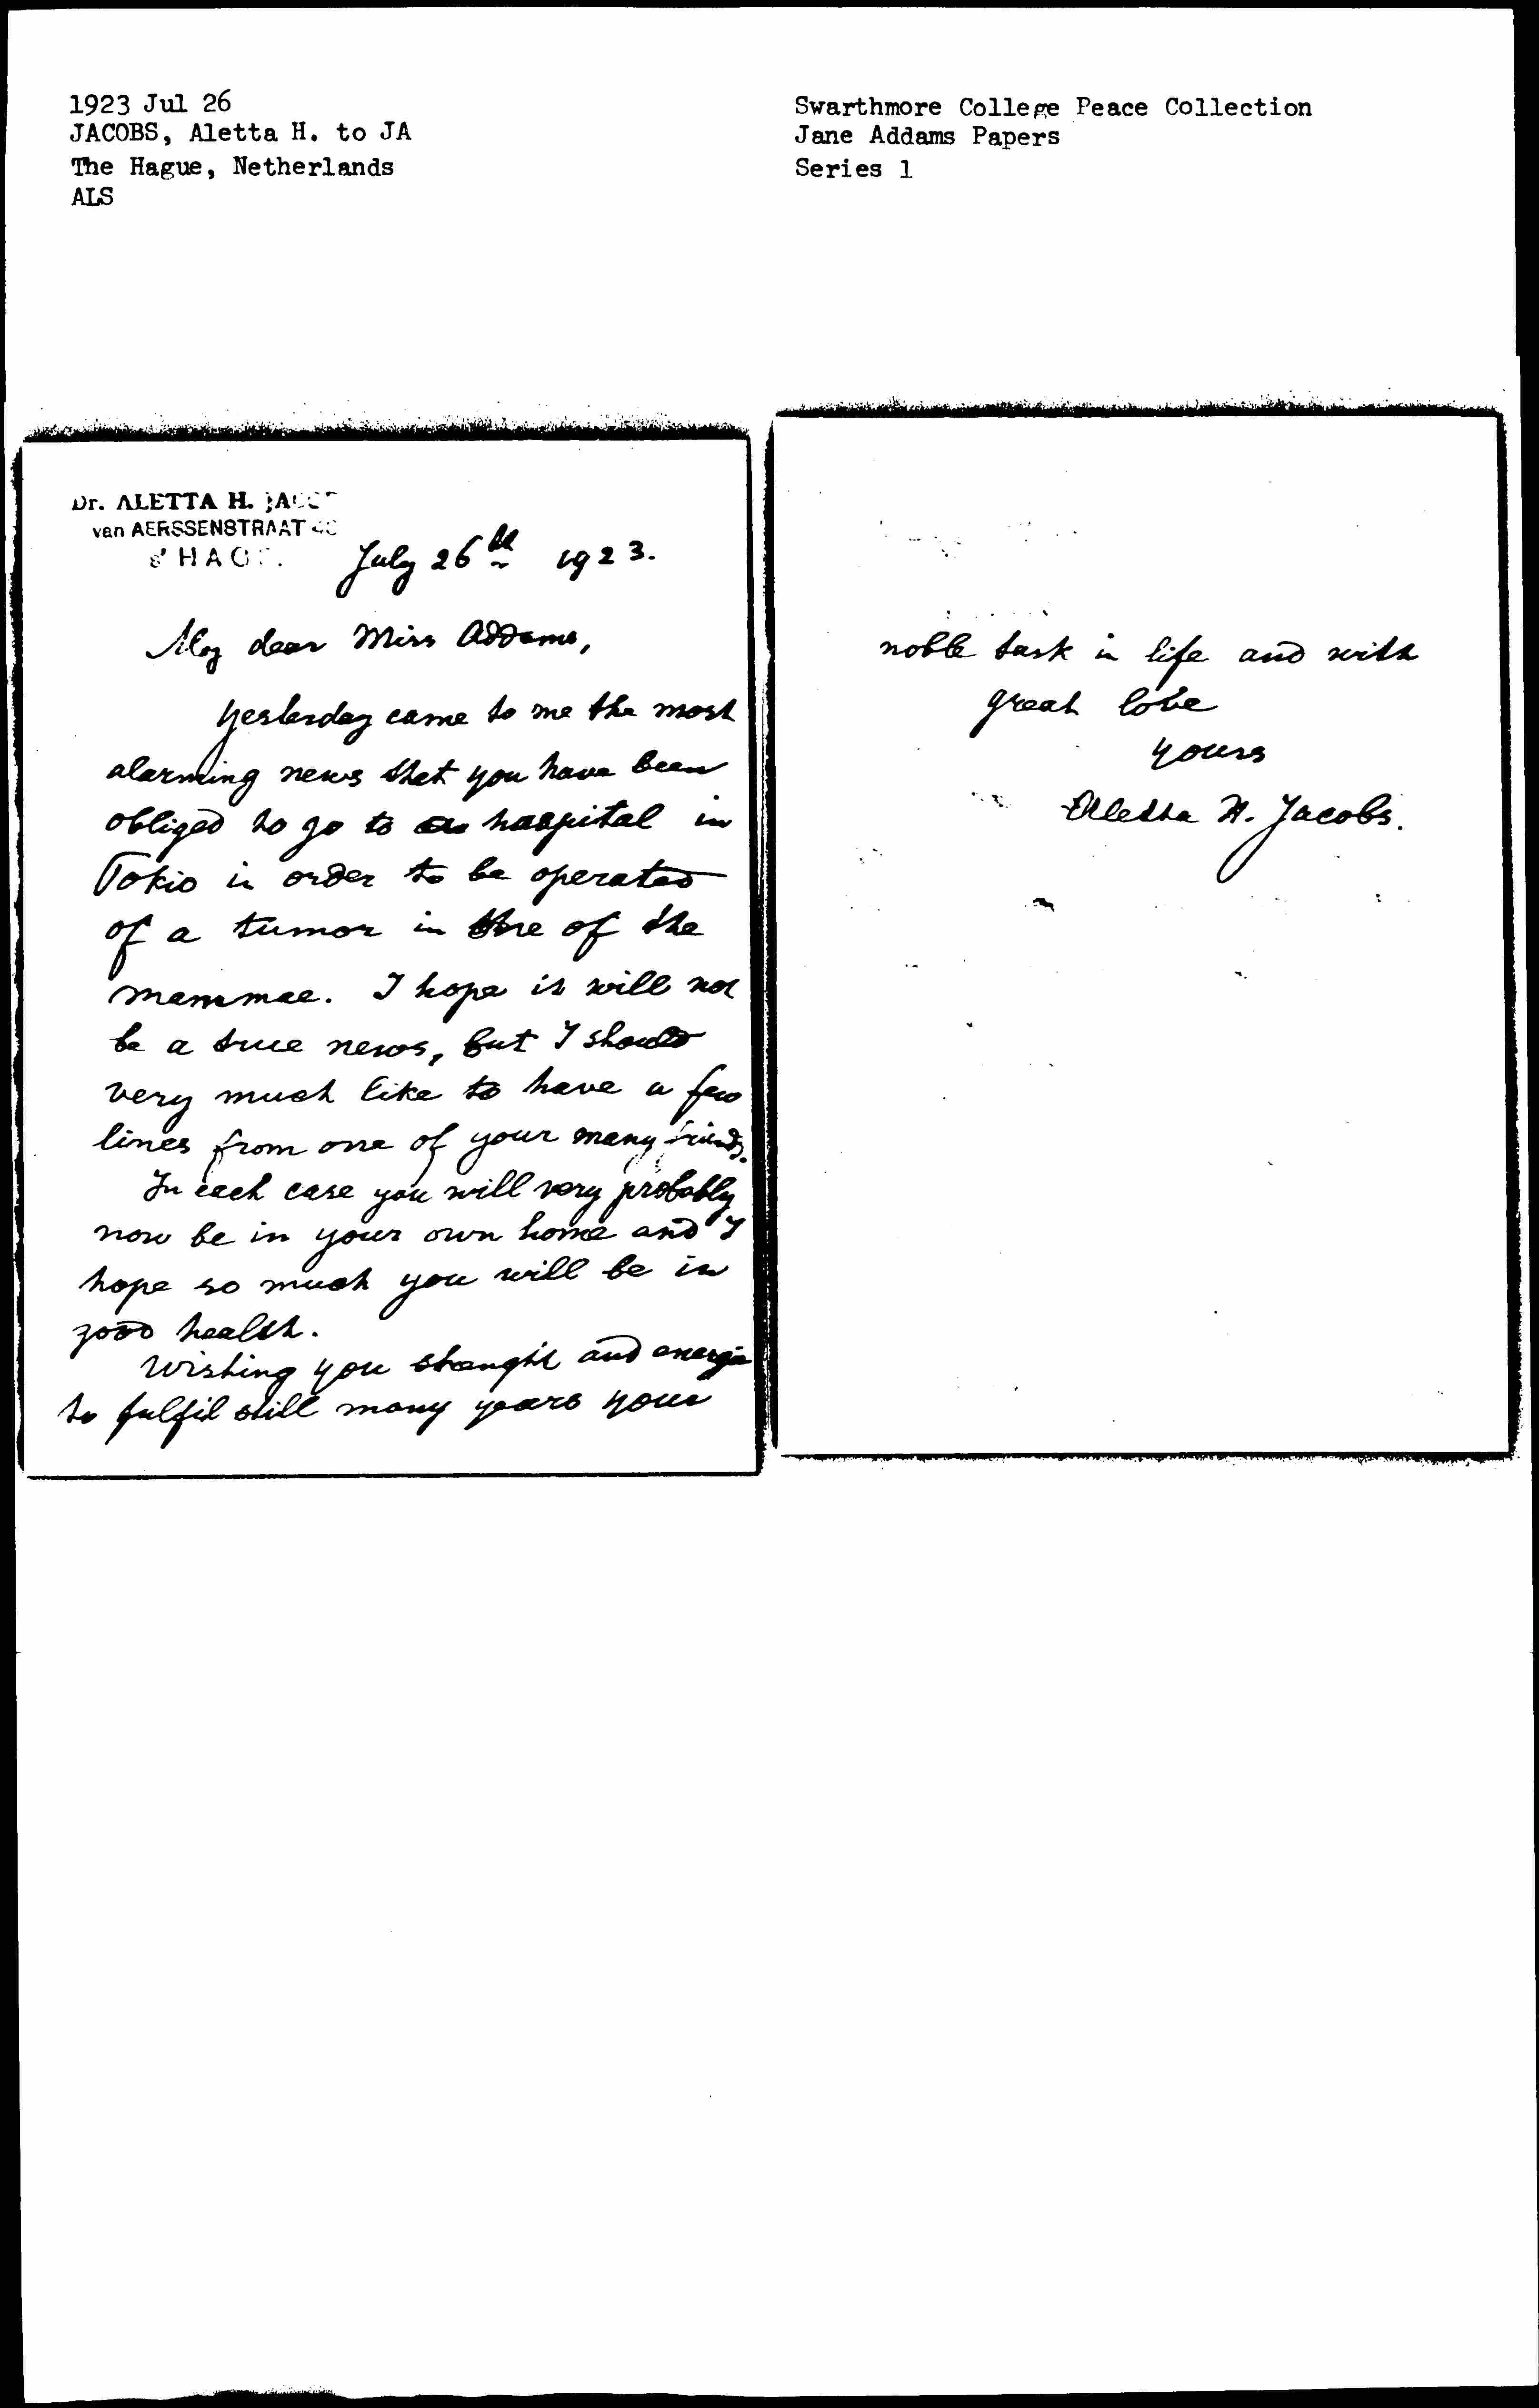 1923 Jul 26
JACOBS, Aletta H. to JA
The Hague, Netherlands
ALS
Swarthmore College Peace Collection
Jane Addams Papers
Series 1
Dr. ALETTA H.
van AERSSENSTRAAT
July 26th 1923.
My dear Miss Addams,
Yesterday came to me the most
alarming news that you have been
obliged to go to a hospital in
Tokio in order to be operated
of a tumor in one of the
mammae. I hope it will not
be a true news, but I should
very much like to have a few
lines from one of your many friends.
In each case you will very probably
now be in your own home and I
hope so much you will be in
good health.
Wishing you and
to fulfil still many years your
noble task in life and with
great love
yours
Aletta H. Jacobs.